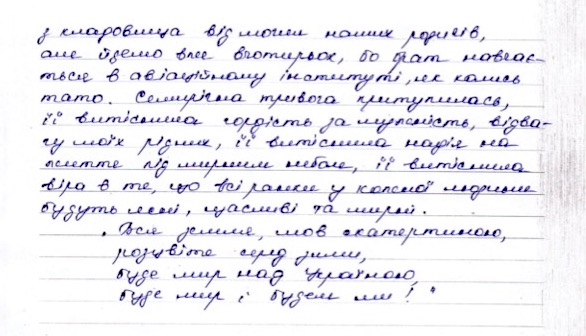 з кладовища від могили наших родичів,
але йдемо вже вчотирьох, бо брат навчає-
ться в авіаційному інституті, як колись
тато. Семирічна тривога притупилась,
її витіснила гордість за мужність, відва-
гу моїх рідних, її витіснила надія на
життя під мирним небом, її витіснила
віра в те, що всі ранки у кожної людини
будуть ясні, щасливі та мирні.
"Вся земля, мов скатертиною,
розцвіте серед зими,
буде мир над Україною,
буде мир і будем ми!"